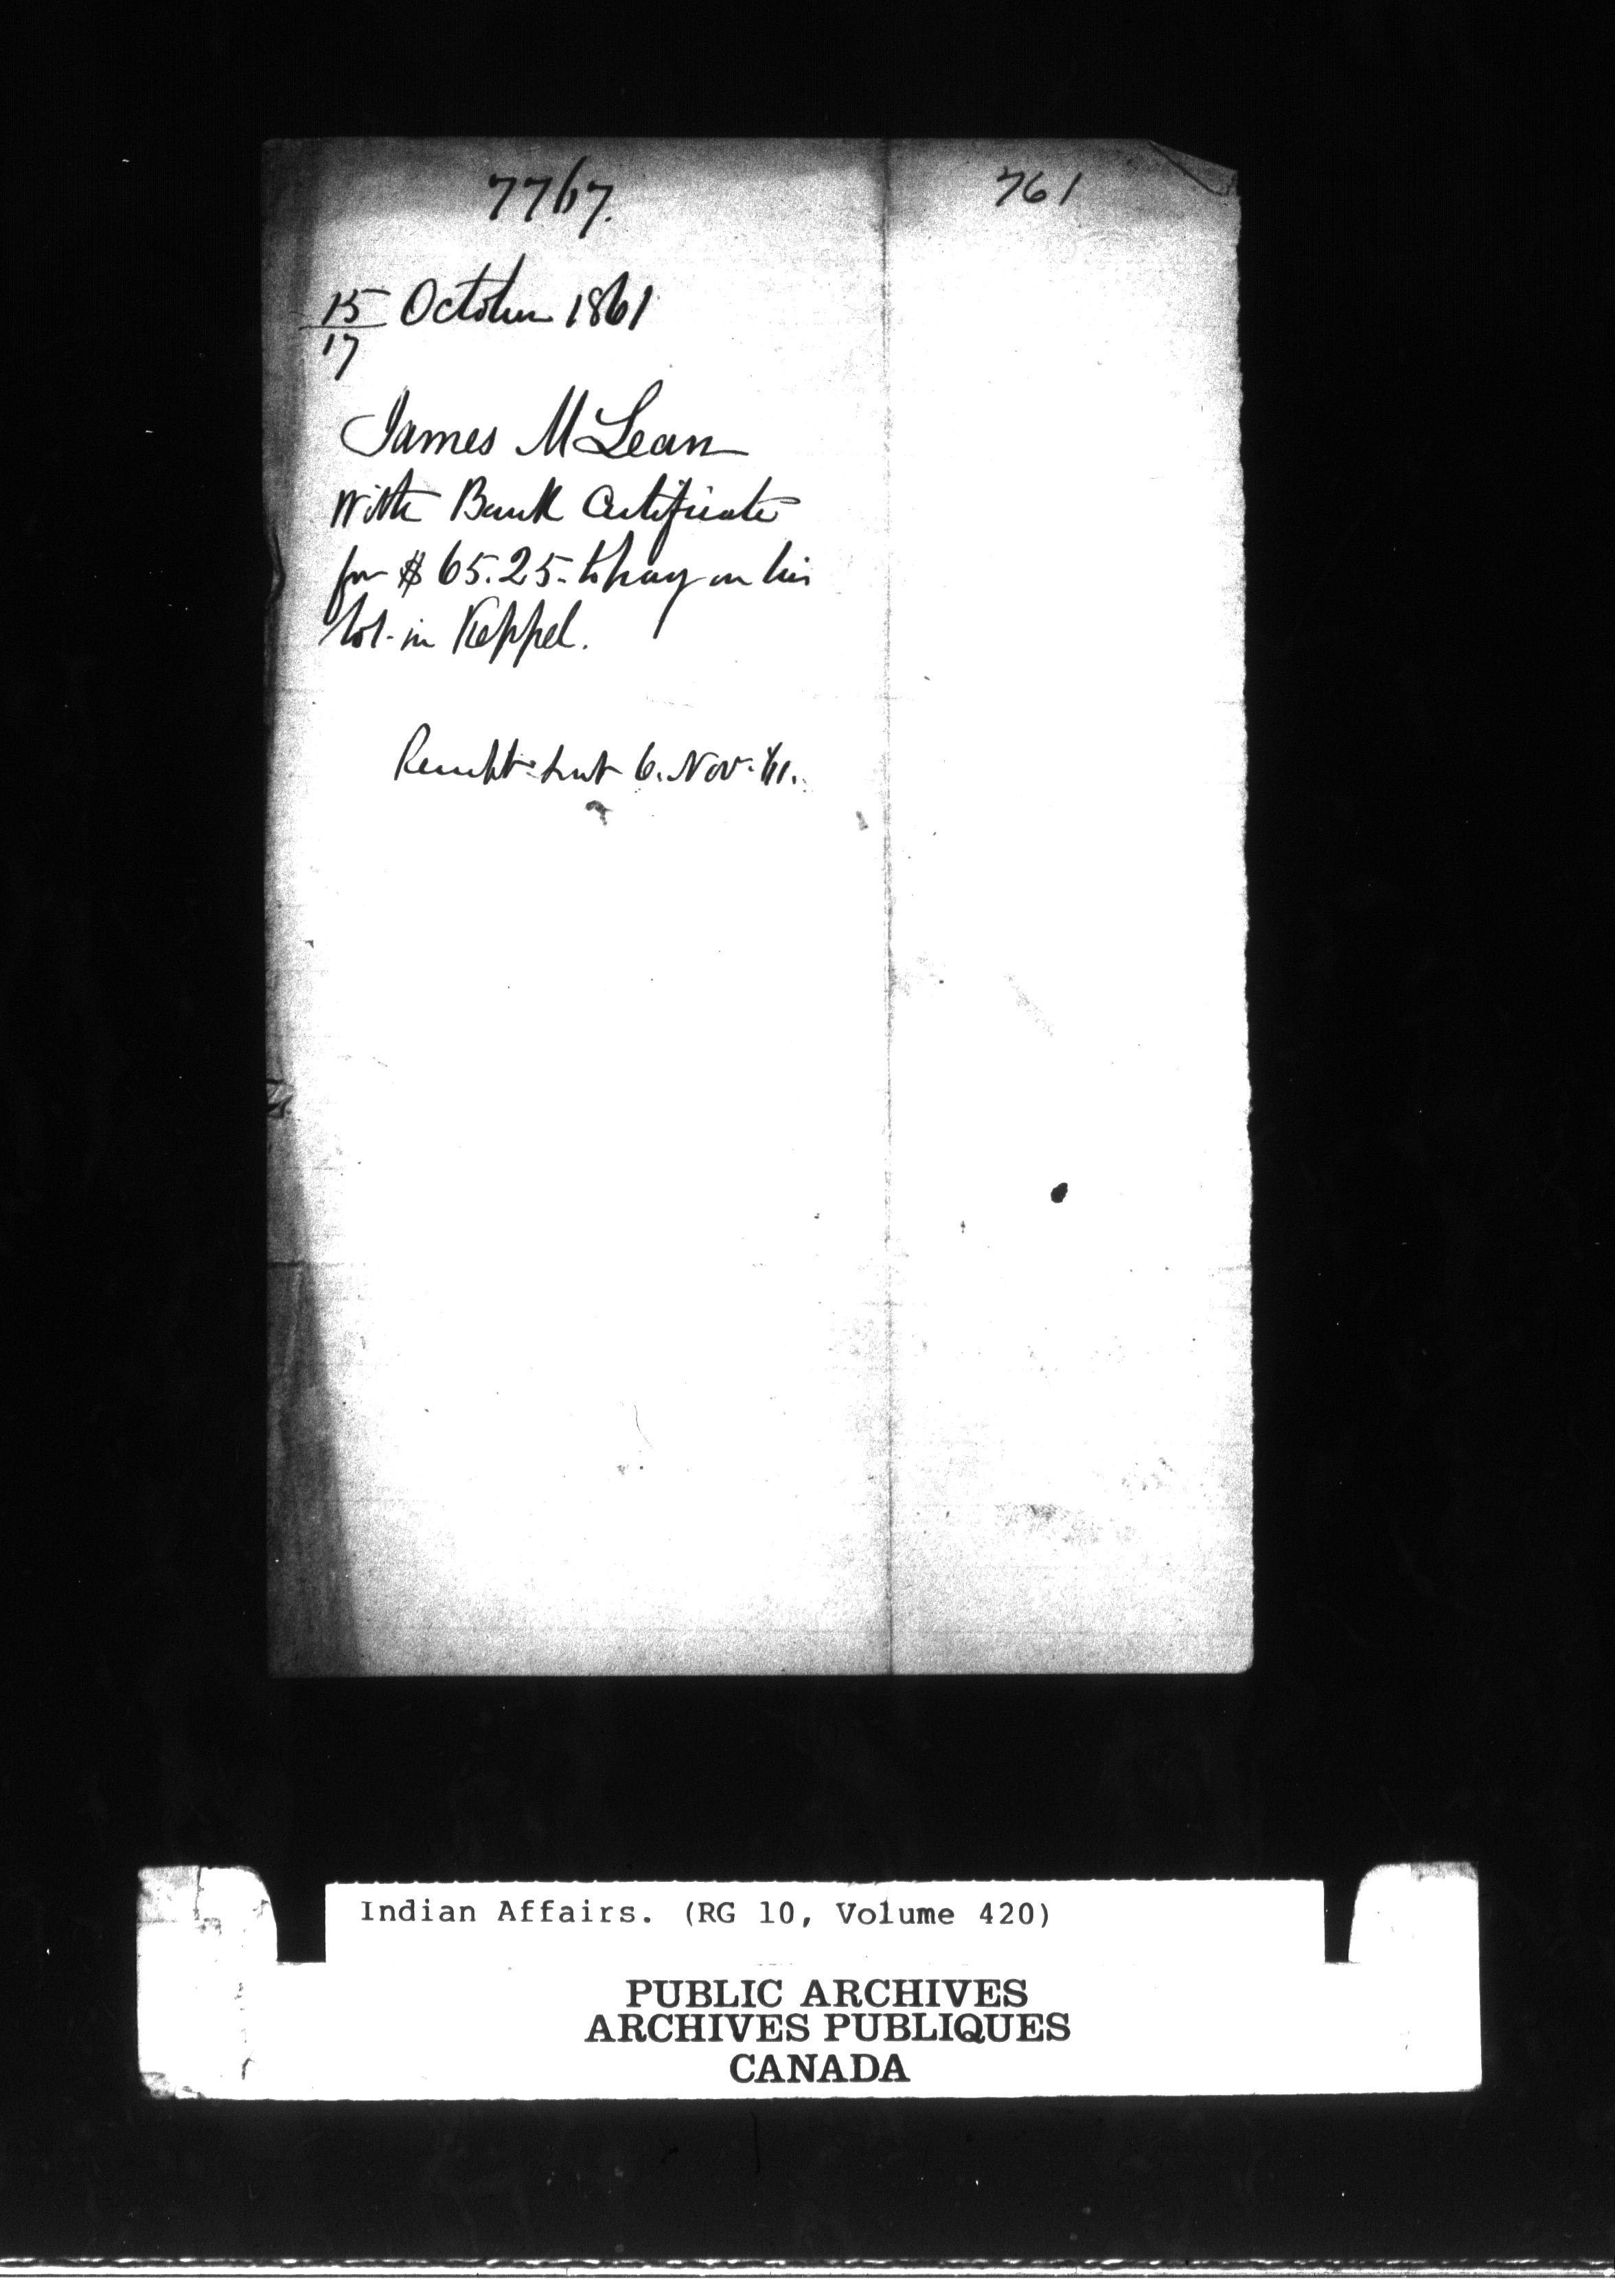 7767.
761
15 October 1861
17
James McLean
With Bank Certificate
for $65.25. to pay on his
lot. in Keppel.
Receipt sent 6. Nov. 61.
Indian Affairs. (RG 10, Volume 420)
PUBLIC ARCHIVES
ARCHIVES PUBLIQUES
CANADA